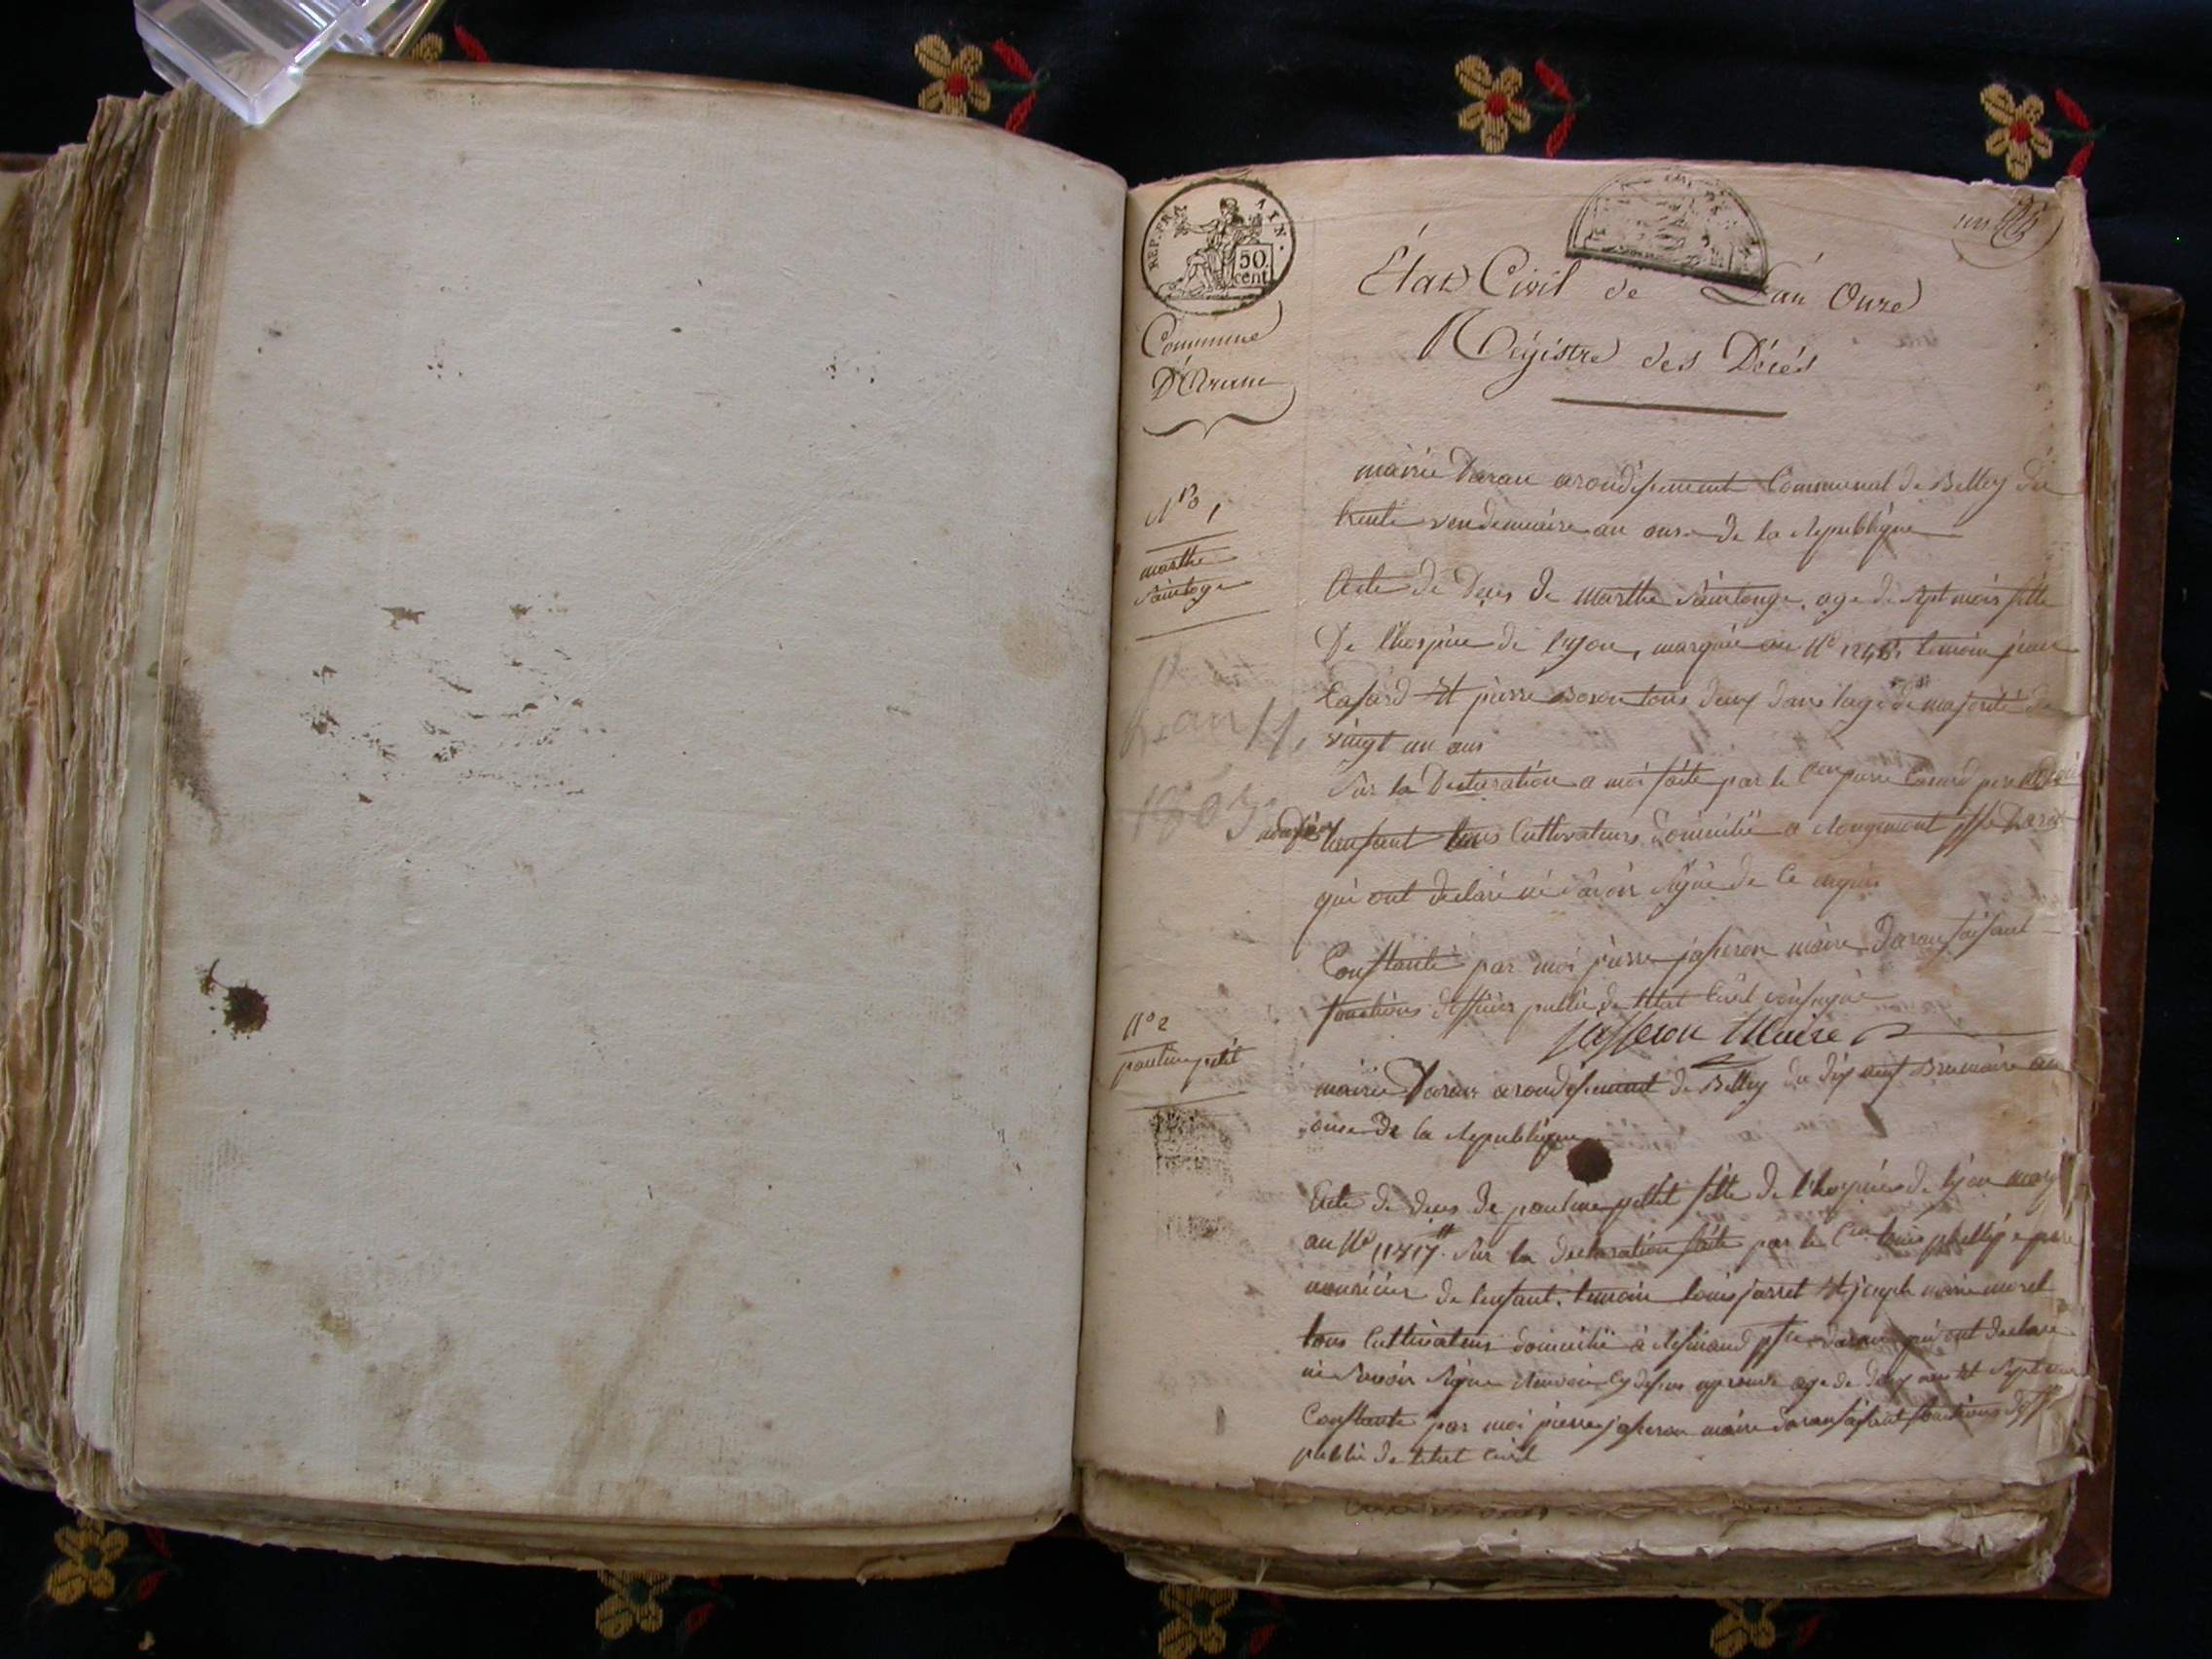 REP. FRA. AIN.
50.
cent
État Civil de L'an Onze
Commune
Régistre des Décés
mairie Daran arondissement Communal de Belley du
N° 1
trente vendemiaire an onze de la Republique
marthe
saintoge
Acte de Deces de marthe Saintonge, age de sept mois fille
De l'hospice de lyon, marquée au N° temoin jean
Et pierre tous deux dans lage de majorité de
L'an 11
vingt un ans
Sur la Declaration a moi faite par le Cen pierre pere
1803
nouricier lenfant tous Cultivateurs domicilié a Longemont
qui ont declaré ne Savoir Signé de Ce enquis
Constanté par moi pierre jasseron maire Daran faisant
fonctions dofficier public de letat Civil soussigné
jasseron Maire
N° 2
pauline petit
mairie Daran arondissement de Belley du dix neuf Brumaire an
onze De la Republique
Acte de deces de pauline pettit fille de l'hospice de lyon marq
au N° Sur la declaration faite par le Cen louis phillipe pere
nouricier de lenfant. temoin louis jarret Et joseph marie morel
tous Cultivateurs domicilié à qui ont declaré
ne Savoir Signé age de deux ans Et Sept
Constanté par moi pierre jasseron maire daran faisant fonctions doff
public de letat Civil